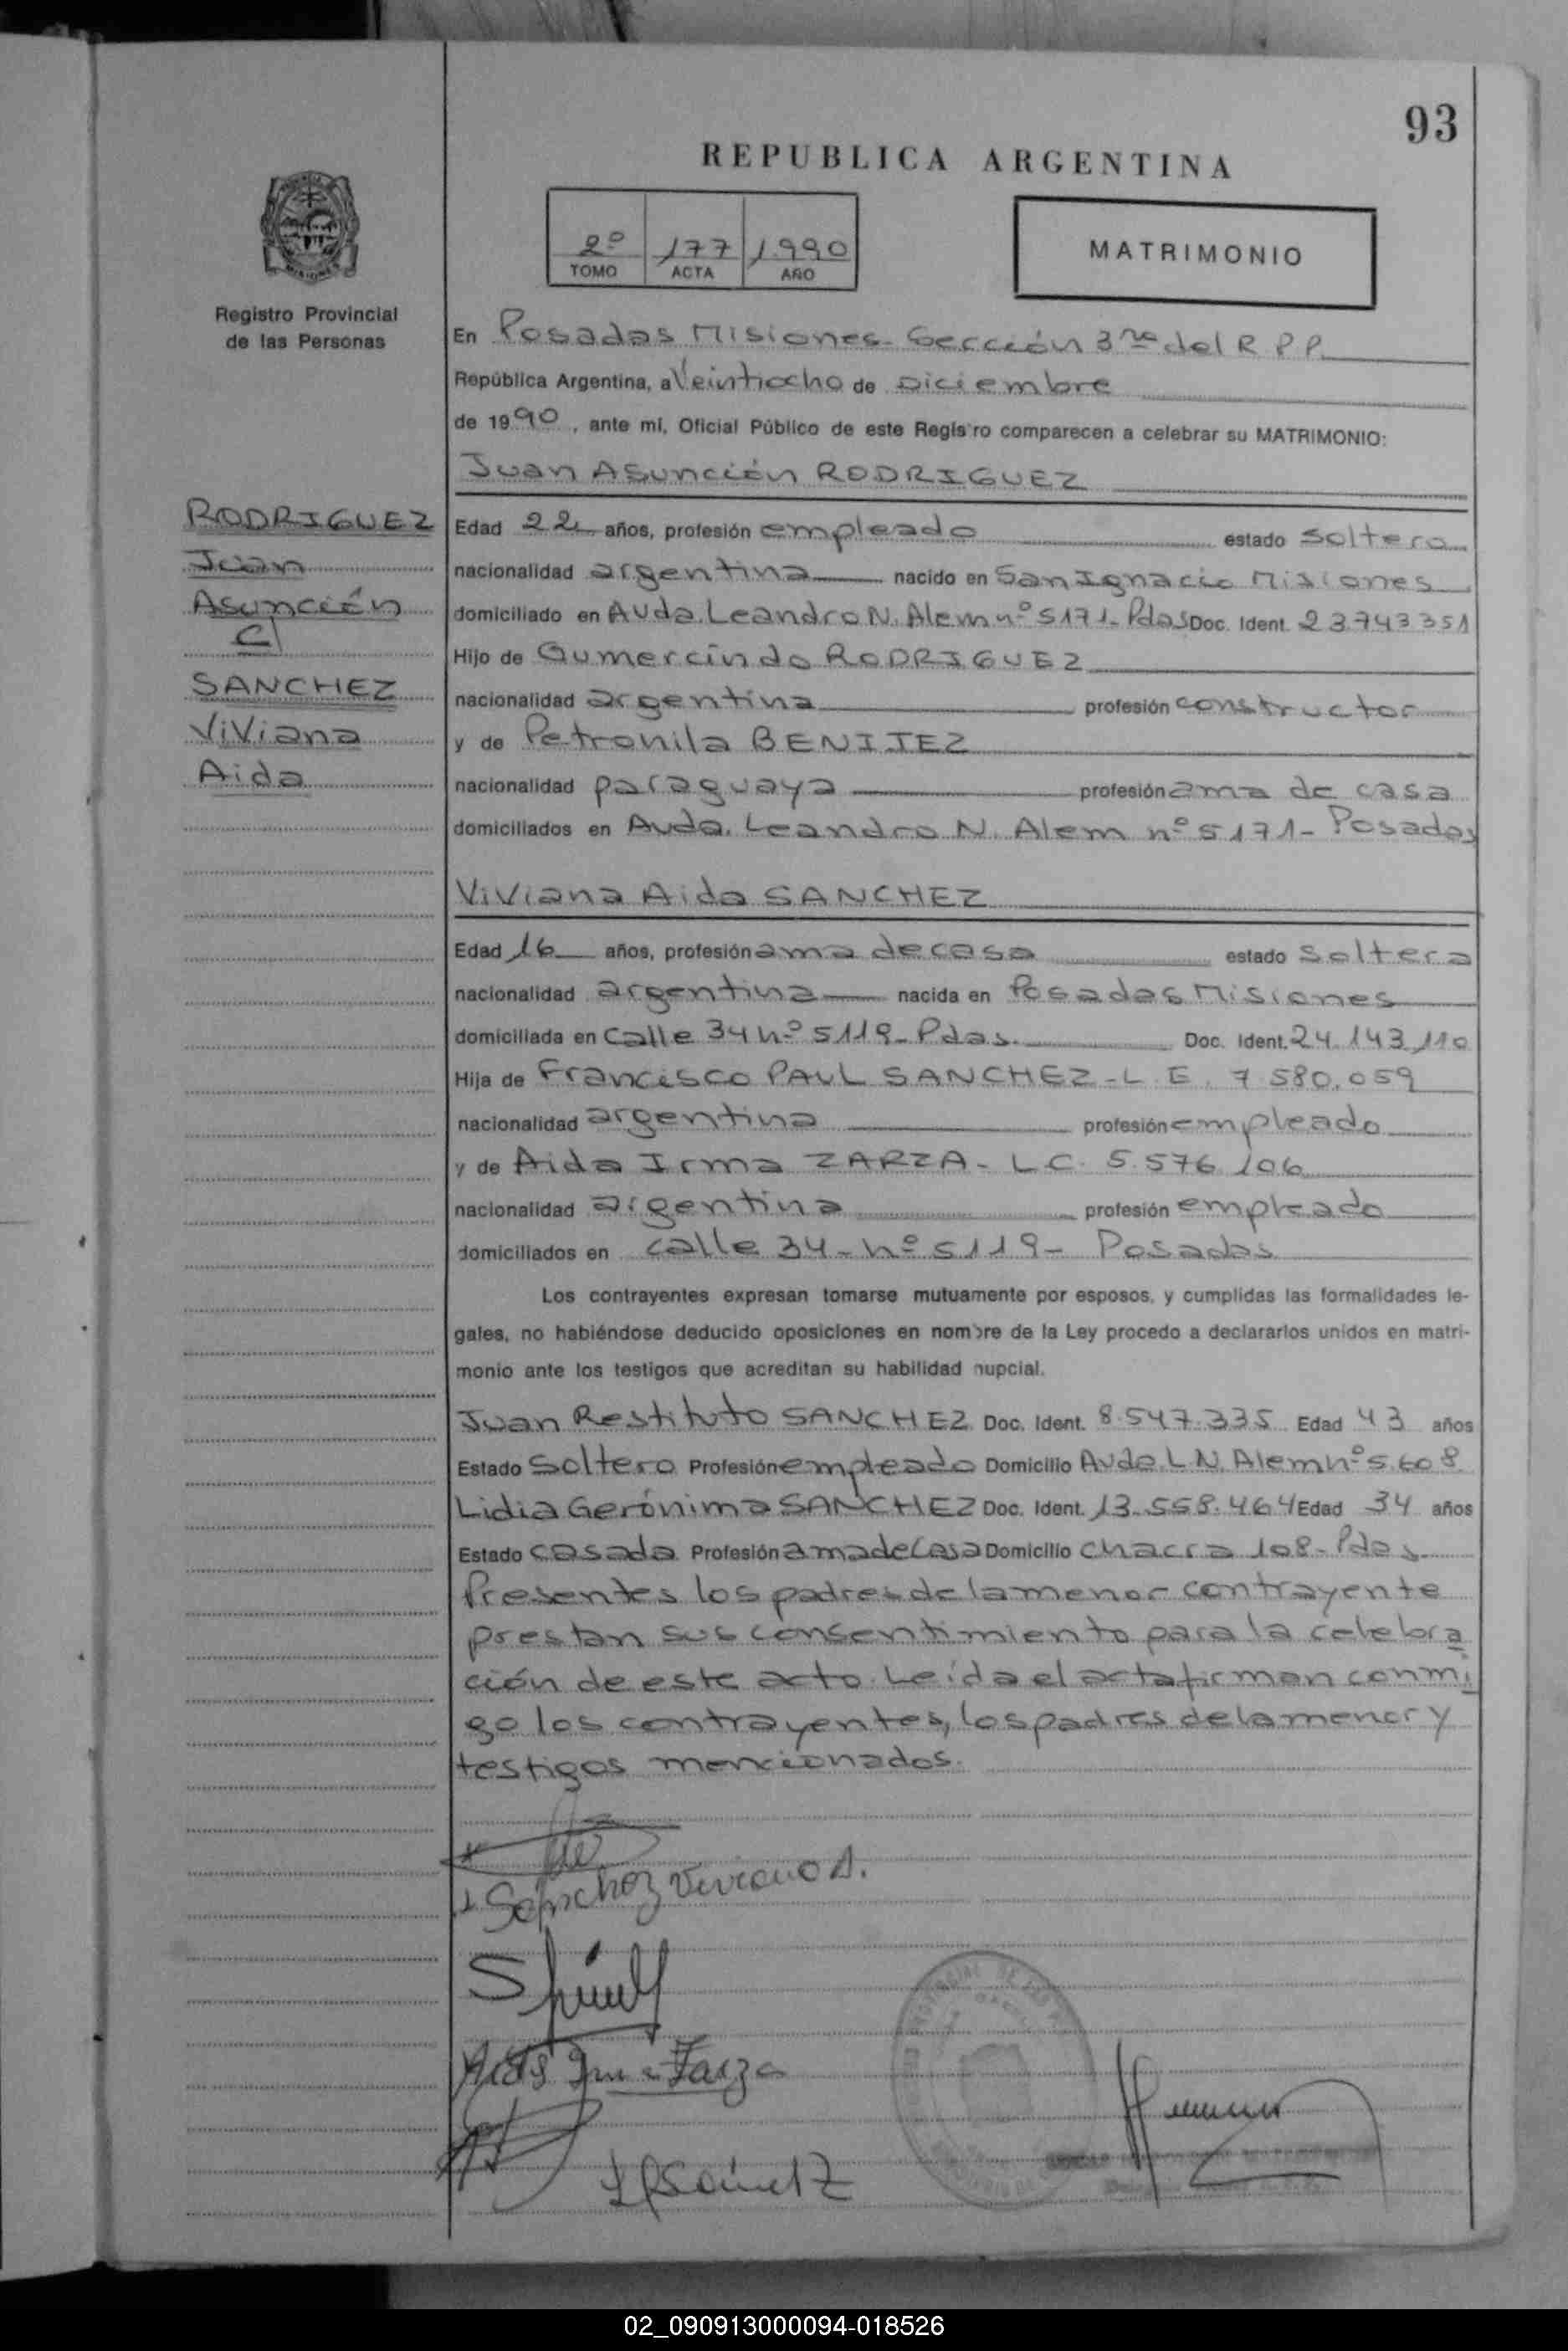 93
REPUBLICA ARGENTINA
2º 177 1.990
TOMO ACTA AÑO
MATRIMONIO
Registro Provincial
de las Personas
En Posadas Misiones- Sección 3ra del R P P
República Argentina, a Veintiocho de Diciembre
de 1990, ante mí, Oficial Público de este Registro comparecen a celebrar su MATRIMONIO:
Juan Asunción RODRIGUEZ
RODRIGUEZ
Juan
Asunción
C/
SANCHEZ
Viviana
Aida
Edad 22 años, profesión empleado estado soltero
nacionalidad argentina nacido en San Ignacio Misiones
domiciliado en Avda. Leandro N. Alem nº 5171- Pdas Doc. Ident. 23.743.351
Hijo de Gumercindo RODRIGUEZ
nacionalidad argentina profesión constructor
y de Petronila BENITEZ
nacionalidad paraguaya profesión ama de casa
domiciliados en Avda. Leandro N. Alem nº 5171- Posadas
Viviana Aida SANCHEZ
Edad 16 años, profesión ama de casa estado soltera
nacionalidad argentina nacida en Posadas Misiones
domiciliada en Calle 34 nº 5119- Pdas. Doc. Ident. 24.143.110
Hija de Francisco PAUL SANCHEZ- L.E. 7.580.059
nacionalidad argentina profesión empleado
y de Aida Irma ZARZA- L.C. 5.576.106
nacionalidad argentina profesión empleado
domiciliados en calle 34- nº 5119- Posadas
Los contrayentes expresan tomarse mutuamente por esposos, y cumplidas las formalidades le-
gales, no habiéndose deducido oposiciones en nombre de la Ley procedo a declararlos unidos en matri-
monio ante los testigos que acreditan su habilidad nupcial.
Juan Restituto SANCHEZ Doc. Ident. 8.547.335 Edad 43 años
Estado Soltero Profesión empleado Domicilio Avda. L N. Alem nº 5.608
Lidia Gerónima SANCHEZ Doc. Ident. 13.558.464 Edad 34 años
Estado casada Profesión ama de casa Domicilio chacra 108- Pdas
Presentes los padres de la menor contrayente
prestan sus consentimiento para la celebra
ción de este acto. Leída el acta firman conmi
go los contrayentes, los padres de la menor y
testigos mencionados.
Sánchez Viviana A.
Aida Irma Zarza
02_090913000094-018526